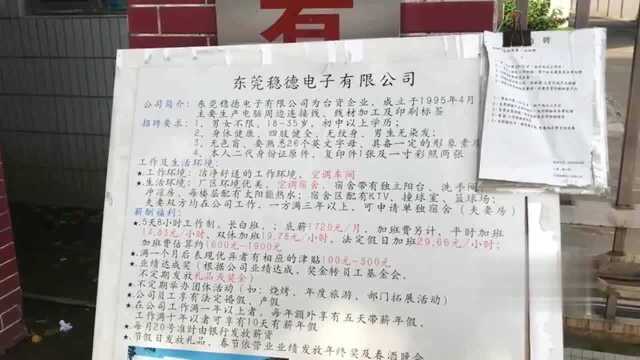 有
东莞稳德电子有限公司
公司简介：东莞稳德电子有限公司为台资企业，成立于1995年4月
主要生产电脑周边连接线、线材加工及印刷标签
招聘要求：1、男女不限，18-35岁，初中以上学历；
2、身体健康，四肢健全，无纹身，男生无染发；
3、无色盲、要熟悉26个英文字母，具备一定的形象素养
4、本人二代身份证原件、复印件1张及一寸彩照两张
工作及生活环境：
★工作环境：洁净舒适的工作环境，空调车间
★生活环境：厂区环境优美，空调宿舍，宿舍带有独立阳台、洗手间
冲凉房、每楼层配有太阳能热水；宿舍区配有KTV、撞球室、篮球场；
夫妻双方均在公司工作，一方满三年以上，可申请单独宿舍（夫妻房）
薪酬福利：
★5天8小时工作制，长白班，；底薪1720元/月，加班费另计，平时加班
14.83元/小时，双休加班19.78元/小时，法定假日加班29.66元/小时；
加班费估算约1600元-1900元
★满一个月后表现优异者有相应的津贴100元-500元
★业绩达成奖（根据公司业绩达成，奖金转员工基金会，
不定期发放礼品及奖金）
★不定期举办团体活动（如：烧烤、年度旅游、部门拓展活动）
★公司员工享有法定婚假、产假
★在公司工作满一年以上者，每年额外享有五天带薪年假，
工作满十年以上者享有10天有薪年假
★每月20号准时由银行发放薪资
★节假日发放礼品，春节依营业业绩发放年终奖及春酒晚会